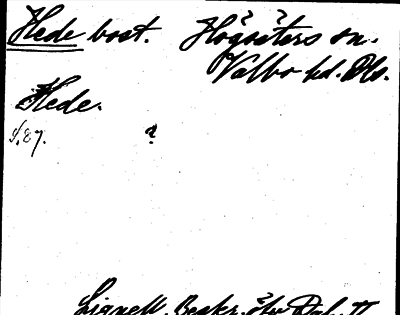 Hede bost. Högsäters sn.
Valbo hd. Dls.
Hede.
s. 87.
Lignell. Beskr. öfv Dal. II